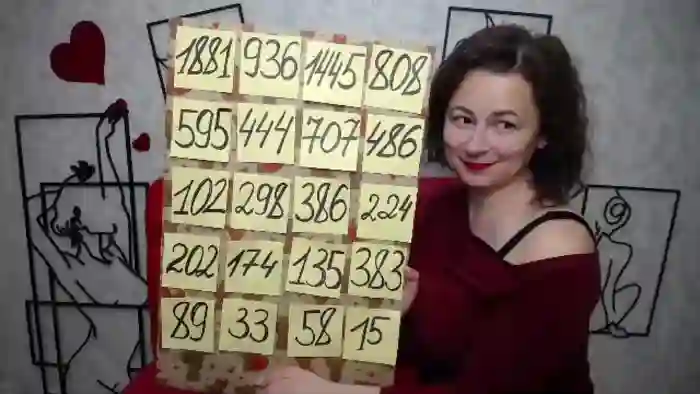 1881 936 1445 808
595 444 707 486
102 298 386 224
202 174 135 383
89 33 58 15